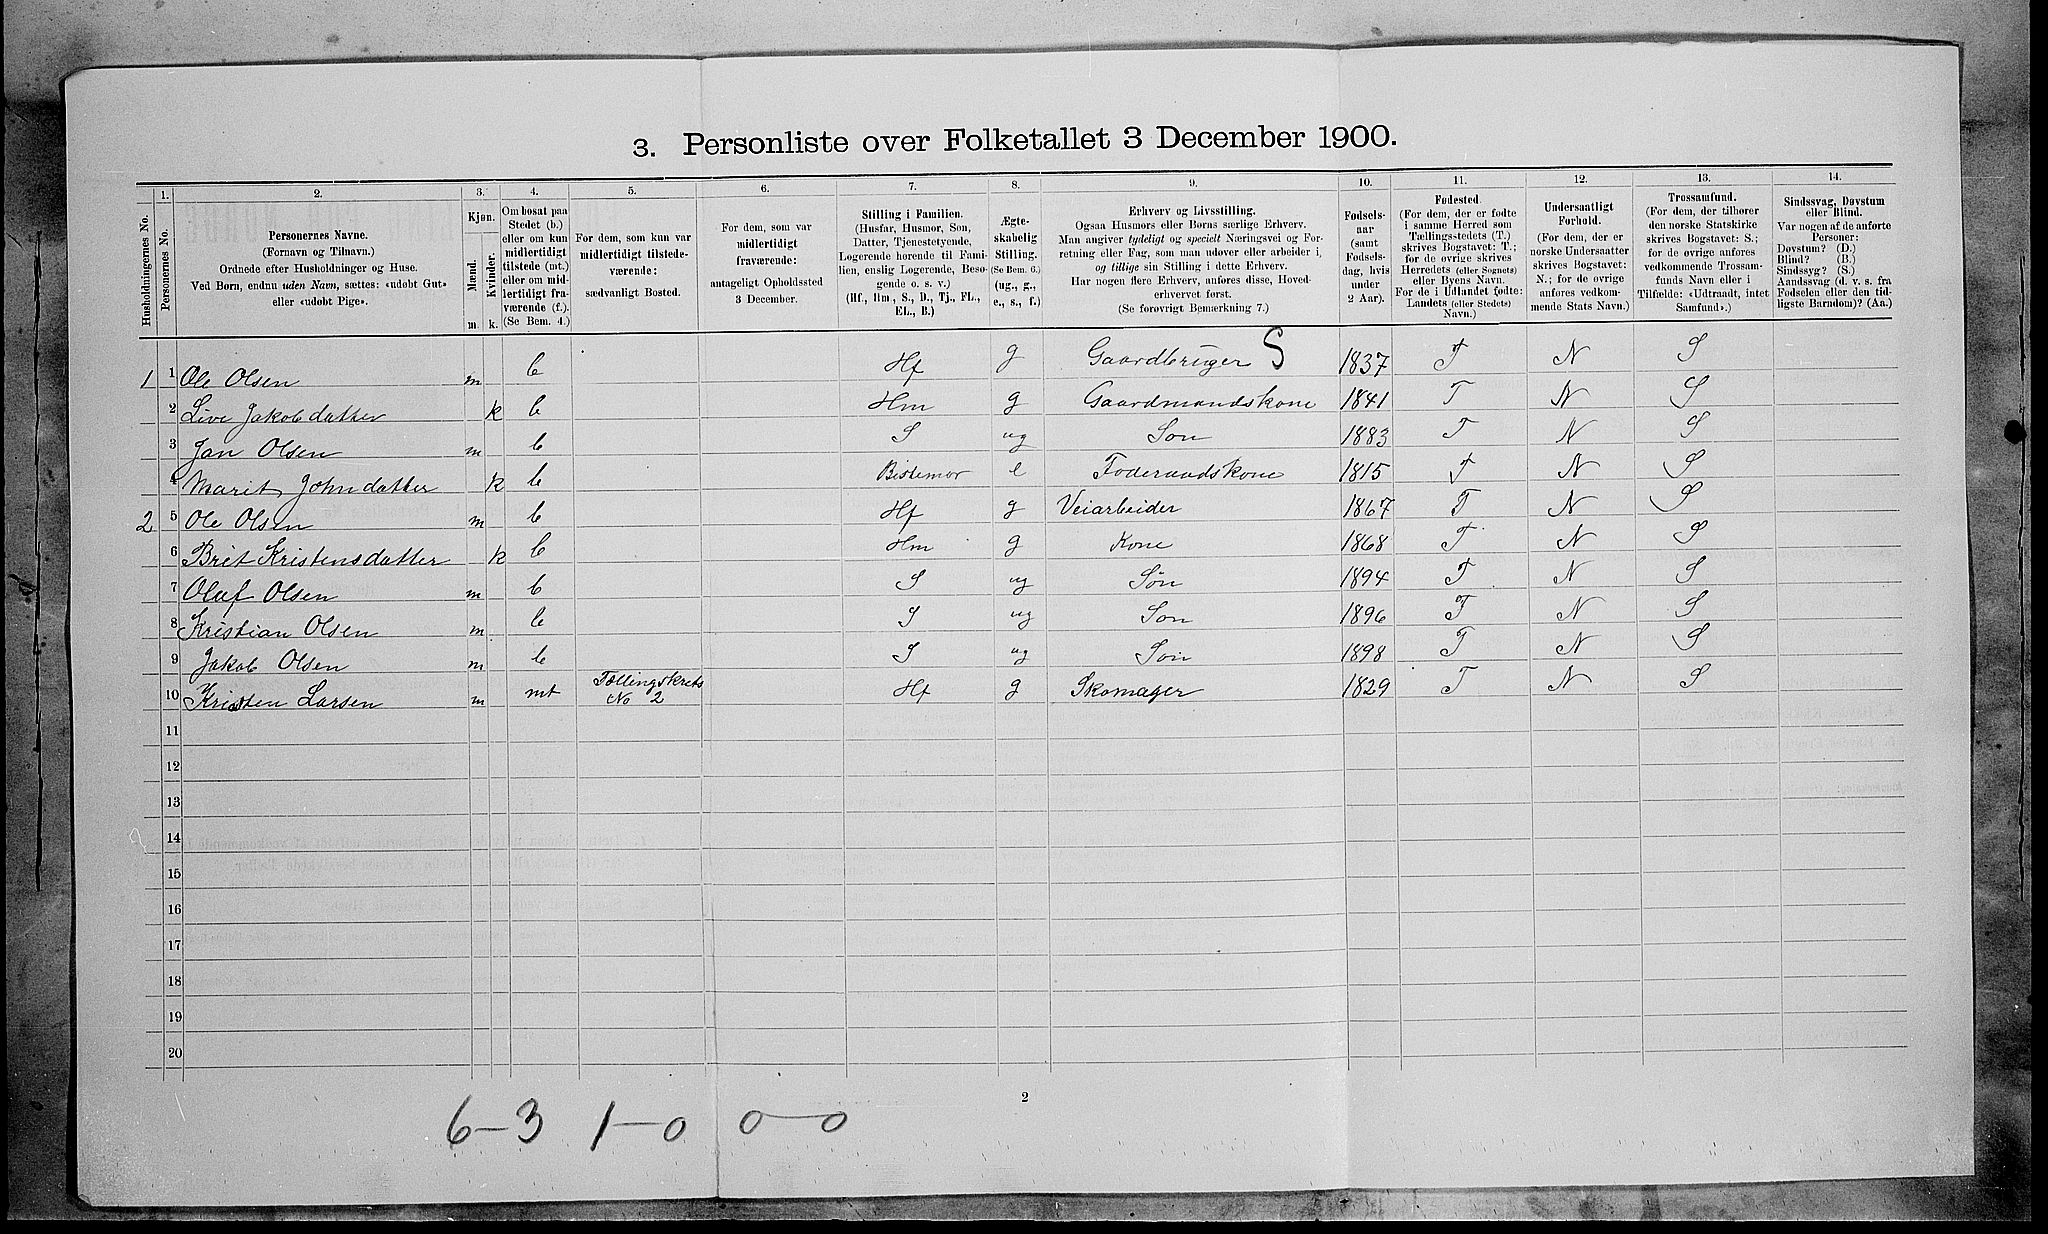 3. Personliste over Folketallet 3 December 1900.
Husholdningernes No.
1. Personernes No.
2. Personernes Navne.
(Fornavn og Tilnavn.)
Ordnede efter Husholdninger og Huse.
Ved Børn, endnu uden Navn, sættes: «udøbt Gut»
eller «udøbt Pige».
3. Kjøn.
Mænd. m.
Kvinder. k.
4. Om bosat paa
Stedet (b.)
eller om kun
midlertidigt
tilstede (mt.)
eller om mid-
lertidigt fra-
værende (f.).
(Se Bem. 4.)
5. For dem, som kun var
midlertidigt tilstede-
værende:
sædvanligt Bosted.
6. For dem, som var
midlertidigt
fraværende:
antageligt Opholdssted
3 December.
7. Stilling i Familien.
(Husfar, Husmor, Søn,
Datter, Tjenestetyende,
Logerende hørende til Fami-
lien, enslig Logerende, Besø-
gende o. s. v.)
(Hf, Hm, S., D., Tj., FL.,
EL., B.)
8. Ægte-
skabelig
Stilling.
(Se Bem. 6.)
(ug., g.,
e., s., f.)
9. Erhverv og Livsstilling.
Ogsaa Husmors eller Børns særlige Erhverv.
Man angiver tydeligt og specielt Næringsvei og For-
retning eller Fag, som man udøver eller arbeider i,
og tillige sin Stilling i dette Erhverv.
Har nogen flere Erhverv, anføres disse, Hoved-
erhvervet først.
(Se forøvrigt Bemærkning 7.)
10. Fødsels-
aar
(samt
Fødsels-
dag, hvis
under
2 Aar).
11. Fødested.
(For dem, der er fødte
i samme Herred som
Tællingsstedets (T.)
skrives Bogstavet: T.;
for de øvrige skrives
Herredets (eller Sognets)
eller Byens Navn.
For de i Udlandet fødte:
Landets (eller Stedets)
Navn.)
12. Undersaatligt
Forhold.
(For dem, der er
norske Undersaatter
skrives Bogstavet:
N.; for de øvrige
anføres vedkom-
mende Stats Navn.)
13. Trossamfund.
(For dem, der tilhører
den norske Statskirke
skrives Bogstavet: S.;
for de øvrige anføres
vedkommende Trossam-
funds Navn eller i
Tilfælde: «Udtraadt, intet
Samfund».)
14. Sindssvag, Døvstum
eller Blind.
Var nogen af de anførte
Personer:
Døvstum? (D.)
Blind? (B.)
Sindssyg? (S.)
Aandssvag (d. v. s. fra
Fødselen eller den tid-
ligste Barndom)? (Aa.)
1 1 Ole Olsen m b Hf g Gaardbruger S 1837 T N S
2 Live Jakobdatter k b Hm g Gaardmandskone 1841 T N S
3 Jan Olsen m b S ug Son 1883 T N S
4 Marit Johndatter k b Bestemor e Foderaadskone 1815 T N S
2 5 Ole Olsen m b Hf g Veiarbeider 1867 T N S
6 Brit Kristensdatter k b Hm g Kone 1868 T N S
7 Oluf Olsen m b S ug Søn 1894 T N S
8 Kristian Olsen m b S ug Søn 1896 T N S
9 Jakob Olsen m b S ug Søn 1898 T N S
10 Kristen Larsen m mt Tællingskrets No 2 Hf g Skomager 1829 T N S
11
12
13
14
15
16
17
18
19
20
2
6–3 1–0 0–0